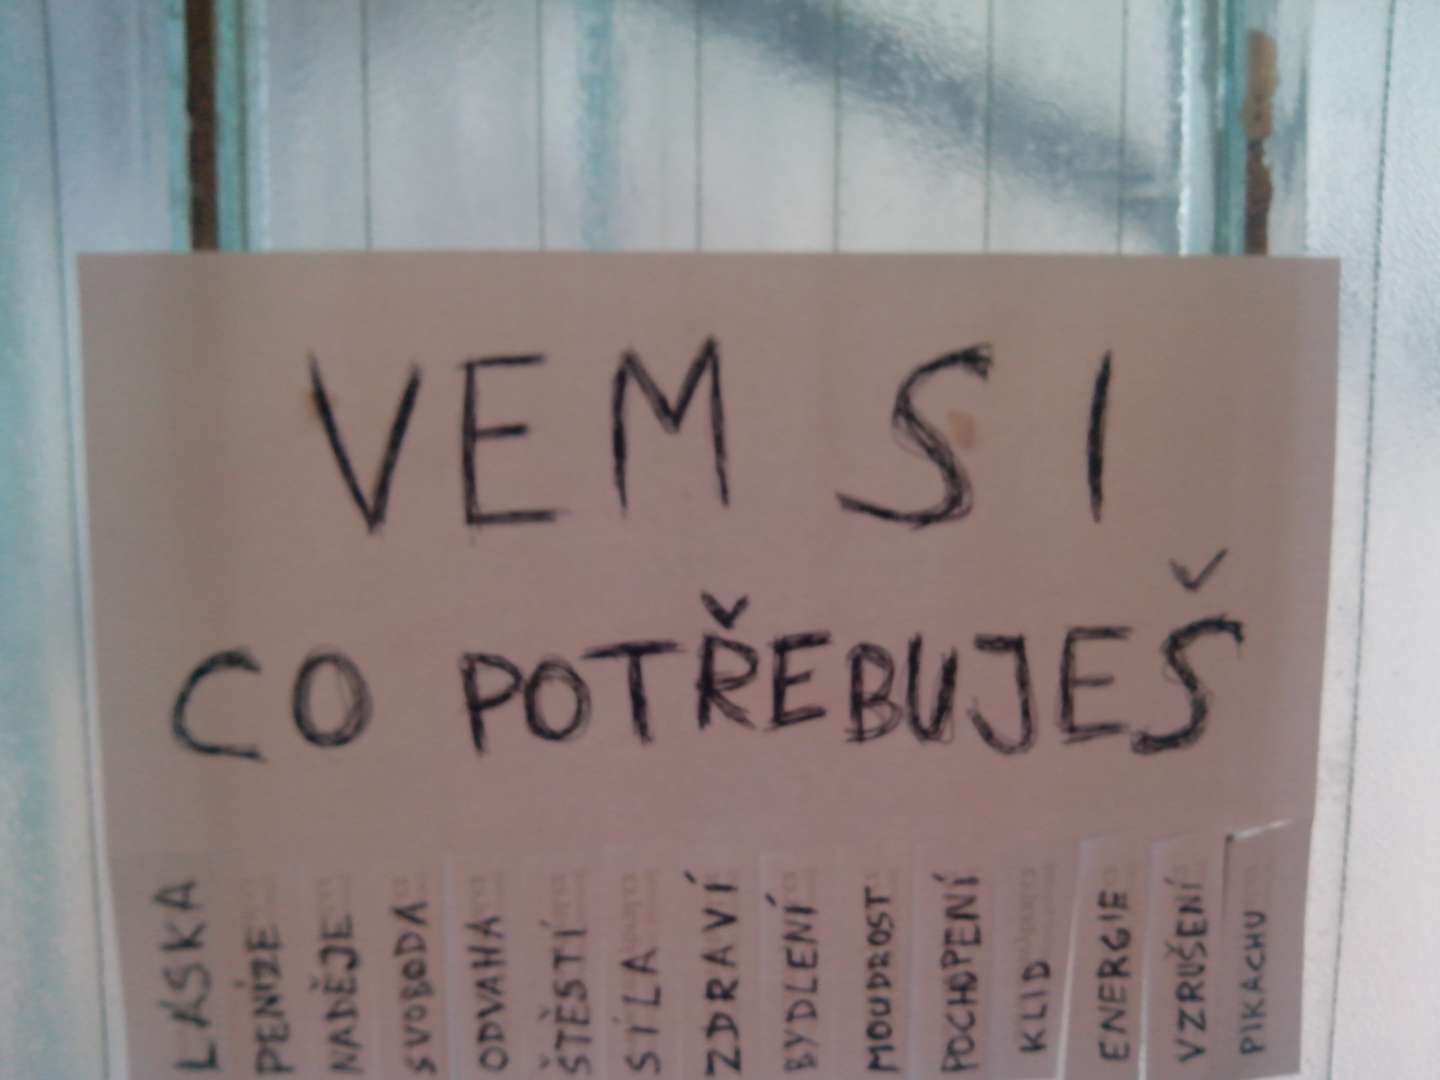 VEM SI
CO POTŘEBUJEŠ
LÁSKA
PENÍZE
NADĚJE
SVOBODA
ODVAHA
ŠTĚSTÍ
SÍLA
ZDRAVÍ
BYDLENÍ
MOUDROST
POCHOPENÍ
KLID
ENERGIE
VZRUŠENÍ
PIKACHU